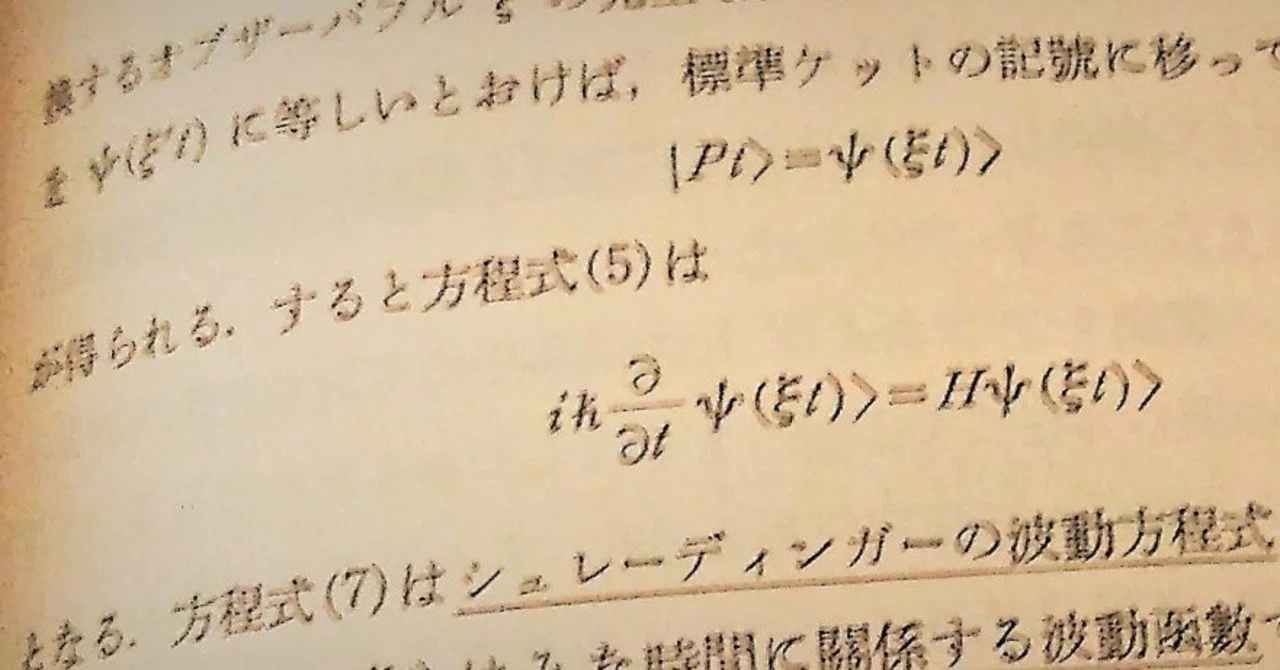 換するオブザーバブル ξ の完全
を ψ(ξ't) に等しいとおけば，標準ケットの記號に移って
|Pt>=ψ(ξt)>
が得られる．すると方程式(5)は
iħ ∂/∂t ψ(ξt)>=Hψ(ξt)>
となる．方程式(7)はシュレーディンガーの波動方程式
時間に關係する波動函數